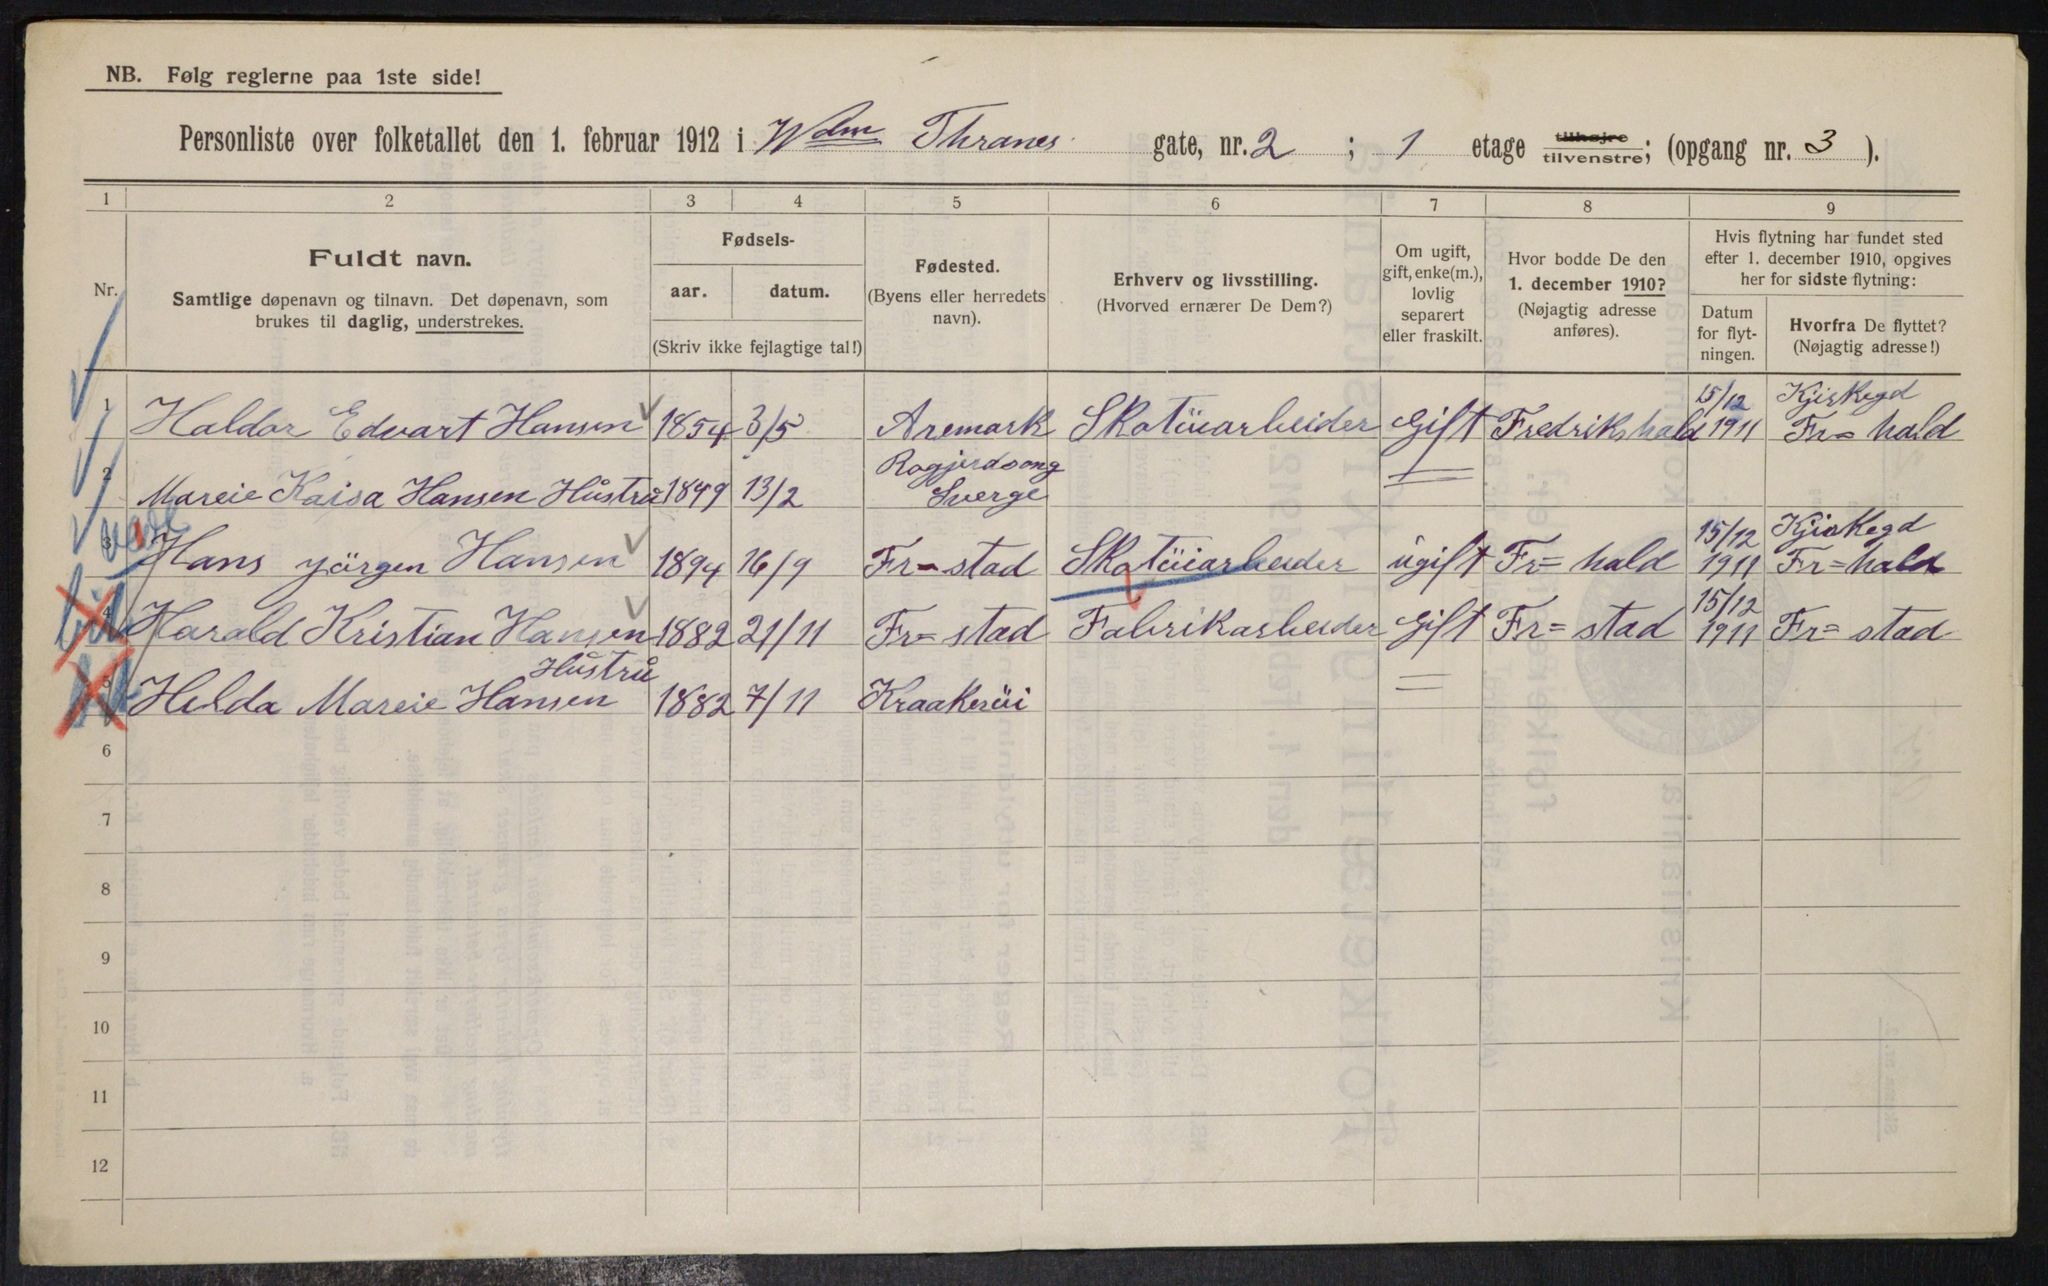 NB. Følg reglerne paa 1ste side!
Personliste over folketallet den 1. februar 1912 i Wdm Thranes gate, nr. 2 ; 1 etage tilhøjre tilvenstre; (opgang nr. 3 ).
1 2 3 4 5 6 7 8 9
Nr.
Fuldt navn.
Samtlige døpenavn og tilnavn. Det døpenavn, som
brukes til daglig, understrekes.
Fødsels-
aar. datum.
(Skriv ikke fejlagtige tal!)
Fødested.
(Byens eller herredets
navn).
Erhverv og livsstilling.
(Hvorved ernærer De Dem?)
Om ugift,
gift, enke(m.),
lovlig
separert
eller fraskilt.
Hvor bodde De den
1. december 1910?
(Nøjagtig adresse
anføres).
Hvis flytning har fundet sted
efter 1. december 1910, opgives
her for sidste flytning:
Datum
for flyt-
ningen.
Hvorfra De flyttet?
(Nøjagtig adresse!)
1 Haldor Edvart Hansen 1854 3/5 Aremark Skotüiarbeider Gift Fredrikshald 15/12 1911 Kjirkegd Fr= hald
2 Mareie Kaisa Hansen Hüstrü 1849 13/2 Sverge
3 Hans Jörgen Hansen 1894 16/9 Fr=stad Skotüiarbeider ügift Fr= hald 15/12 1911 Kjirkegd Fr=hald
4 Harald Kristian Hansen 1882 21/11 Fr= stad Fabrikarbeider Gift Fr= stad 15/12 1911 Fr= stad
5 Helda Mareie Hansen Hüstrü 1882 7/11 Kraakerüi
6
7
8
9
10
11
12